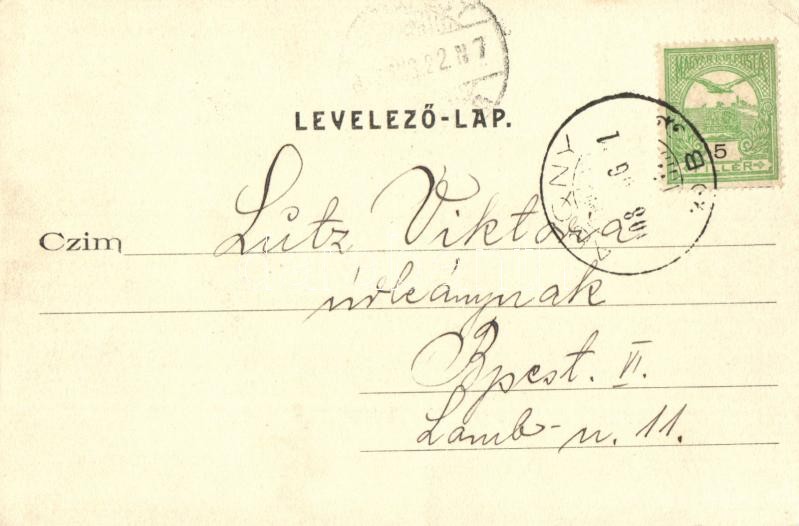 LEVELEZŐ-LAP.
MAGYAR KIR. POSTA
5
FILLÉR
Czim Lutz Viktória
úrleánynak
Bpest. VI.
Lomb-u. 11.